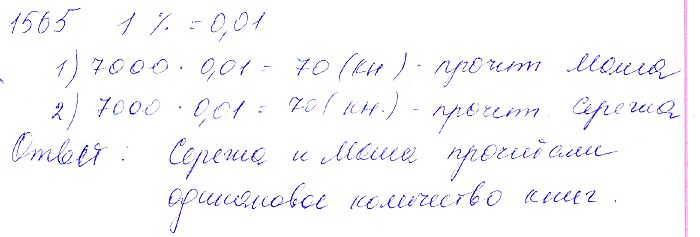 1565 1 % = 0,01
1) 7000 · 0,01 = 70 (кн) - прочит Маша
2) 7000 · 0,01 = 70 (кн.) - прочит. Сережа
Ответ : Сережа и Маша прочитали
одинаковое количество книг.